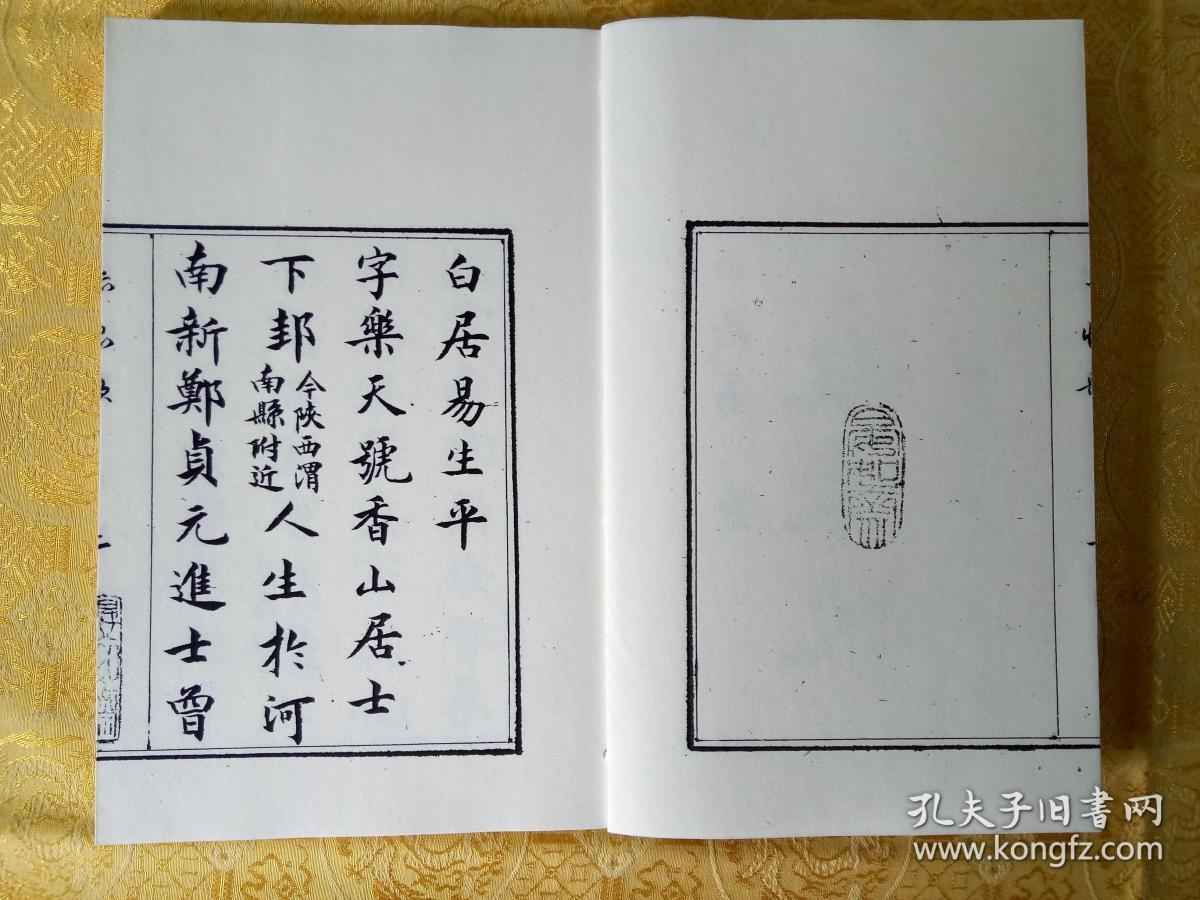 白居易生平
字樂天號香山居士
下邽今陝西渭南縣附近人生於河
南新鄭貞元進士曾
孔夫子旧書网
www.kongfz.com